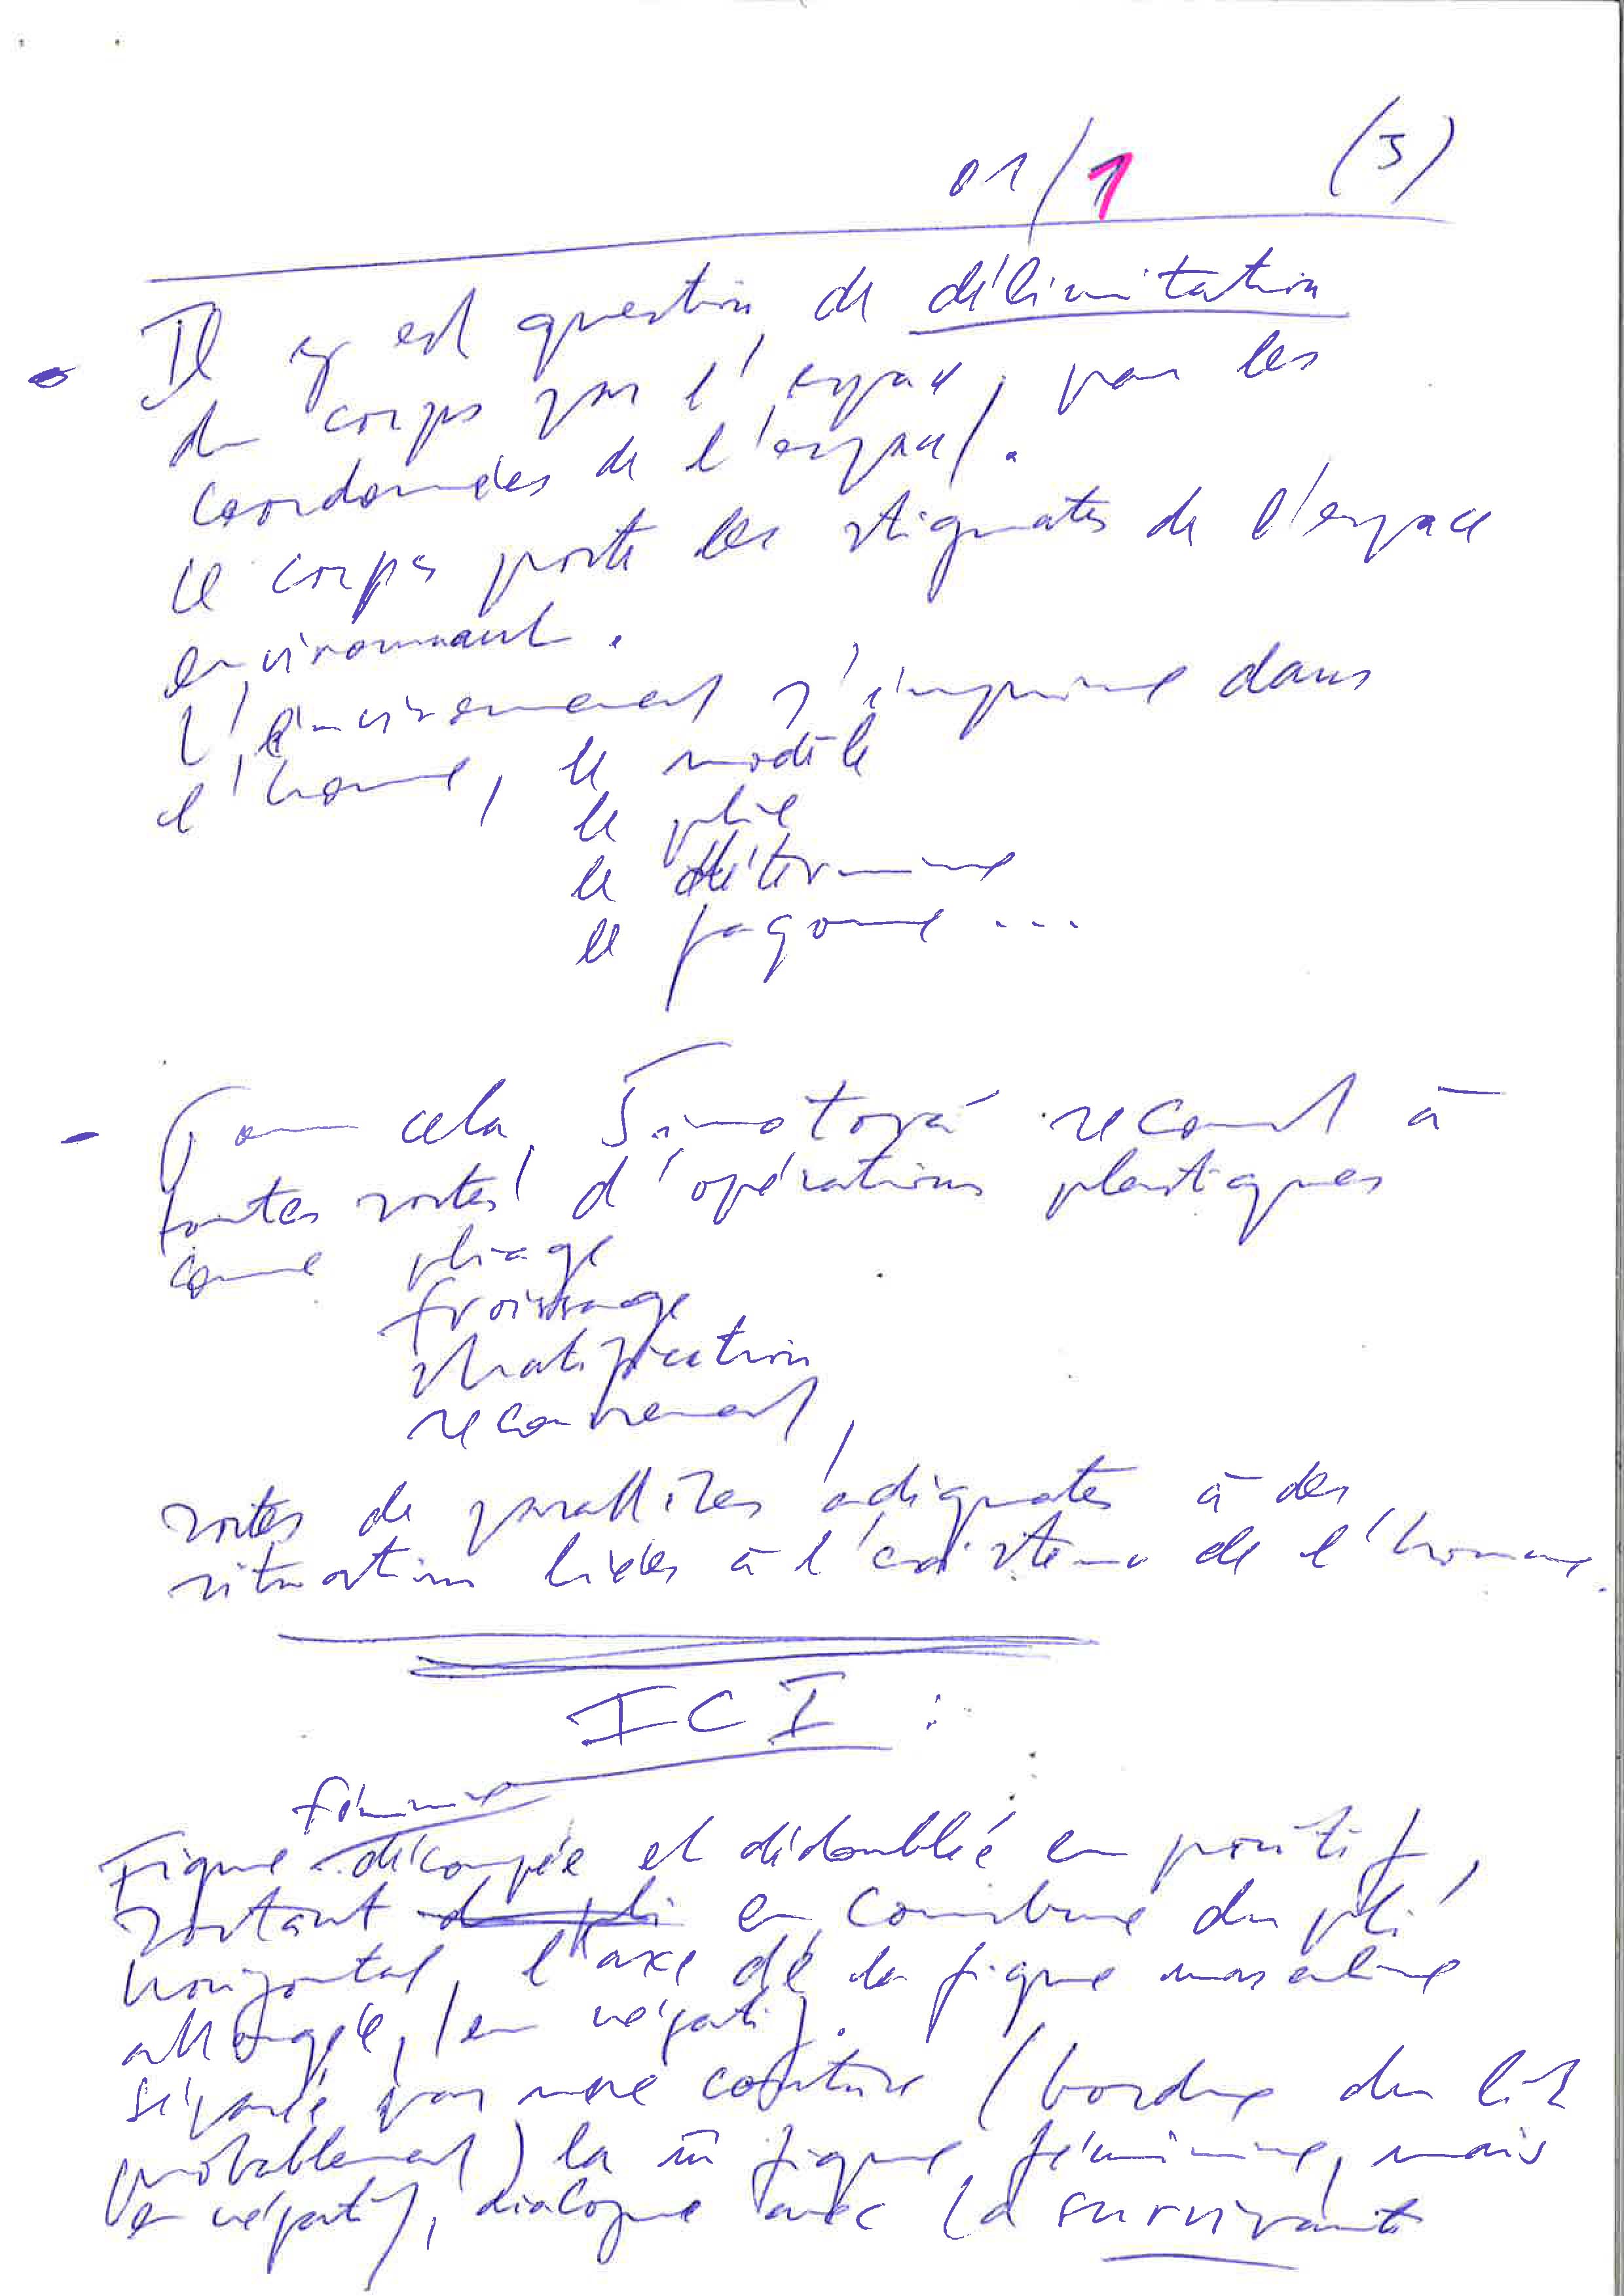 01/1 (3)
- Il y est question de délimitation
du corps par l'espace, par les
coordonnées de l'espace.
Ce corps porte les stigmates de l'espace
environnant.
L'environnement s'imprime dans
l'homme, le modèle
le plie
le détermine
le façonne ...
- Pour cela, Simotová recourt à
toutes sortes d'opérations plastiques
comme pliage
froissage
stratification
recouvrement,
sortes de parallèles adéquates à des
situations liées à l'existence de l'homme.
ICI :
féminine
Figure découpée et dédoublée en positif,
sortant en courbure du pli
horizontal, l'axe de la figure masculine
allongée, en négatif.
Séparée par une couture (bordure du lit
probablement) la m̄ figure féminine, mais
en négatif, dialogue avec la survivante